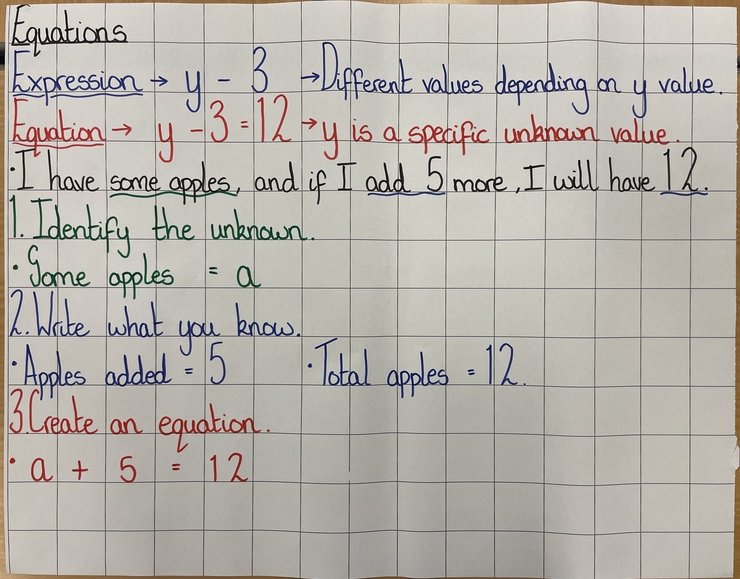 Equations
Expression → y - 3 → Different values depending on y value.
Equation → y - 3 = 12 → y is a specific unknown value.
· I have some apples, and if I add 5 more, I will have 12.
1. Identify the unknown.
· Some apples = a
2. Write what you know.
· Apples added = 5 · Total apples = 12.
3 Create an equation.
· a + 5 = 12